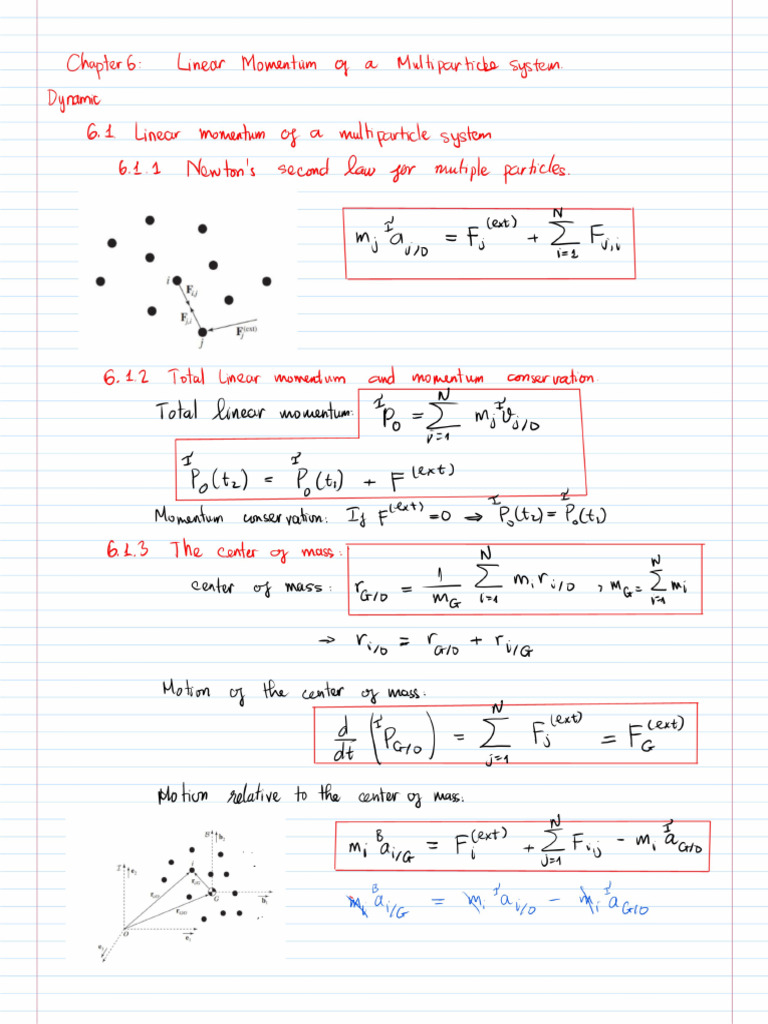 Chapter 6: Linear Momentum of a Multiparticle system.
Dynamic
6.1 Linear momentum of a multiparticle system
6.1.1 Newton's second law for mutiple particles.
m_j ^I a_{j/O} = F_j^{(ext)} + ∑_{i=1}^{N} F_{j,i}
i
F_{i,j}
F_{j,i}
F_j^{(ext)}
j
6.1.2 Total Linear momentum and momentum conservation
Total linear momentum: ^I P_O = ∑_{j=1}^{N} m_j ^I v_{j/O}
^I P_O(t_2) = ^I P_O(t_1) + F^{(ext)}
Momentum conservation: If F^{(ext)} = 0 ⇒ ^I P_O(t_2) = ^I P_O(t_1)
6.1.3 The center of mass:
center of mass: r_{G/O} = 1/m_G ∑_{i=1}^{N} m_i r_{i/O} , m_G = ∑_{i=1}^{N} m_i
→ r_{i/O} = r_{G/O} + r_{i/G}
Motion of the center of mass:
d/dt (^I P_{G/O}) = ∑_{j=1}^{N} F_j^{(ext)} = F_G^{(ext)}
Motion relative to the center of mass:
m_i ^B a_{i/G} = F_i^{(ext)} + ∑_{j=1}^{N} F_{i,j} - m_i ^I a_{G/O}
m_i ^B a_{i/G} = m_i ^I a_{i/O} - m_i ^I a_{G/O}
B b_2
I e_2
i
r_{i/G}
r_{i/O}
G
b_1
r_{G/O}
O
e_1
e_3